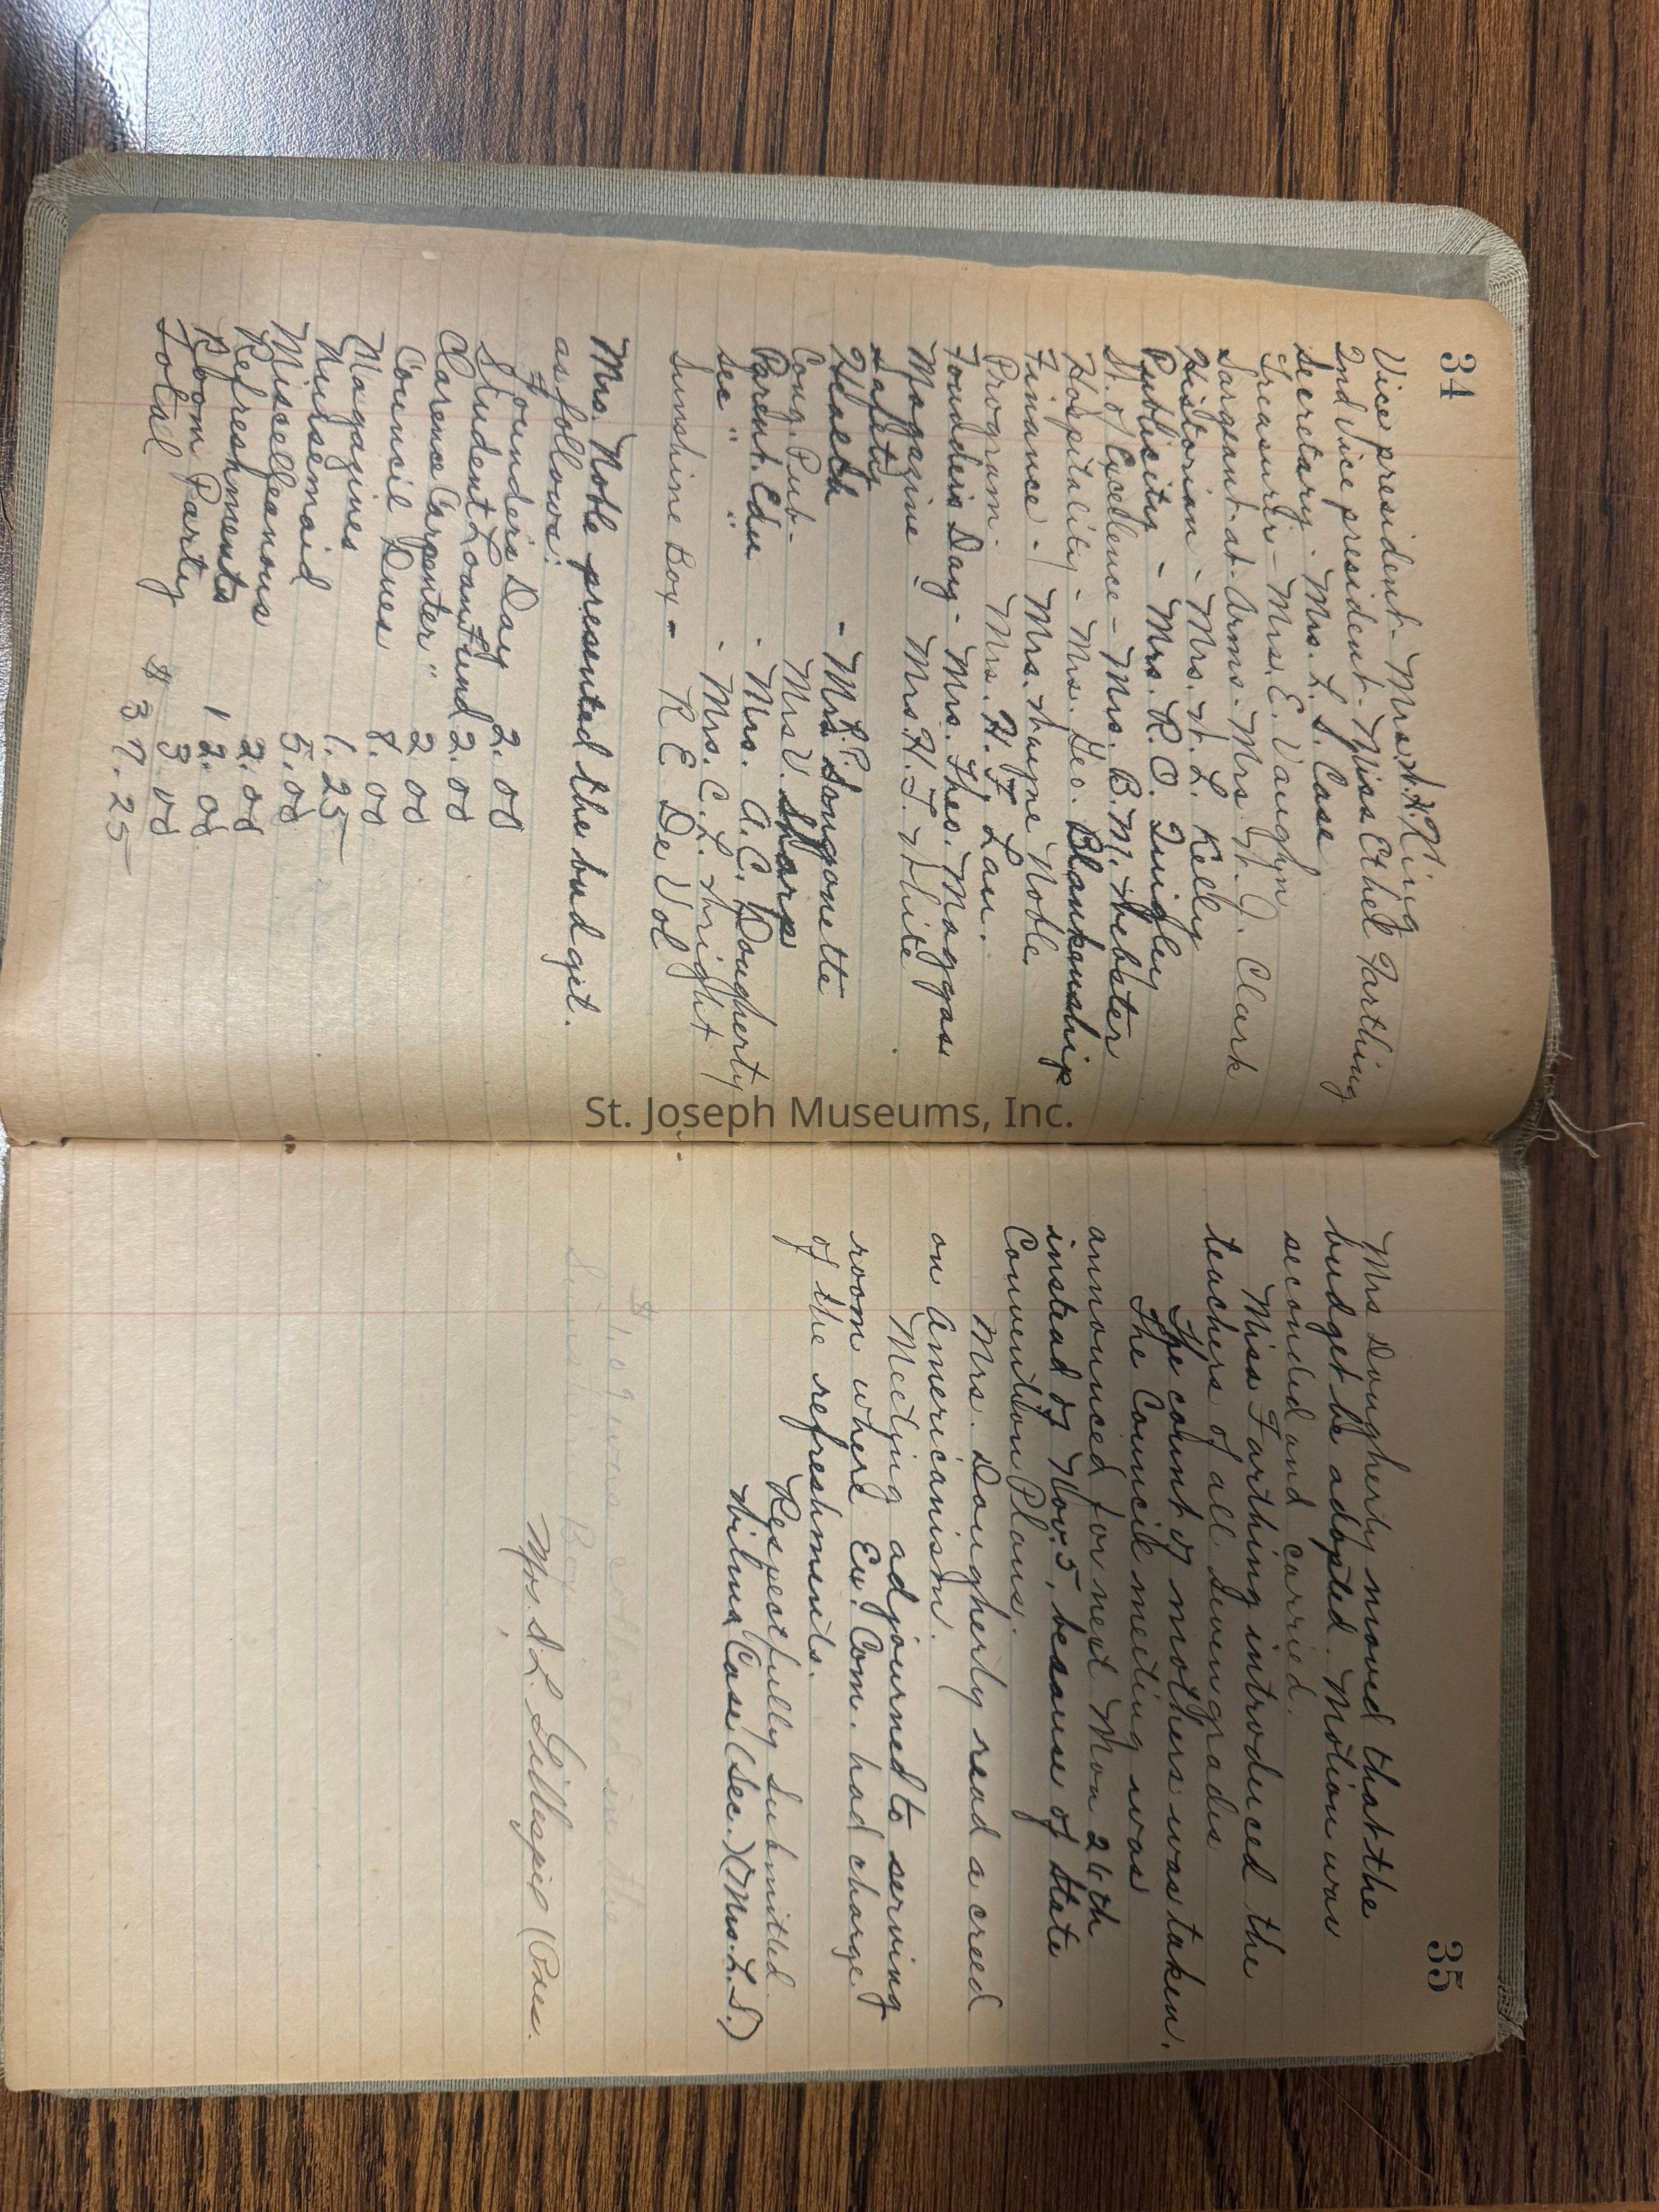 34
Vice president - Mrs. W. H. King
2nd Vice president - Miss Ethel Farthing
Secretary - Mrs. L. S. Case
Treasurer - Mrs. E. Vaughn
Sargeant-at-Arms - Mrs. W. J. Clark
Historian - Mrs. W. L. Kelley
Publicity - Mrs. R. O. Quigley
St. of Excellence - Mrs. B. M. Webster
Hospitality - Mrs. Geo. Blankenship
Finance - Mrs. Wayne Noble.
Program - Mrs. H. F. Lau.
Founders Day - Mrs. Theo. Maggass
Magazine - Mrs. H. T. White
Safety
Health - Mrs. R. P. Songonette
Cong. Pub. - Mrs V. Sharp
Parent. Edu - Mrs. A. C. Dougherty
Sec " " - Mrs. C. L. Wright
Sunshine Box - R E De Vol
Mrs. Noble presented the budget.
as follows:
Founder's Day 2.00
Student Loan Fund 2.00
Clarence Carpenter " 2 00
Council Dues 8.00
Magazines 1.25
Nursemaid 5.00
Miscelleanous 2.00
Refreshments 12.00
Room Party 3 00
Total $37.25
35
Mrs Dougherty moved that the
budget be adopted. Motion was
seconded and carried.
Miss Farthing introduced the
teachers of all seven grades
The count of mothers was taken.
The Council meeting was
announced for next Mon 26th
instead of Nov. 5, because of State
Convention Plans.
Mrs. Dougherty read a creed
on Americanism.
Meeting adjourned to serving
room where Ex. Com. had charge
of the refreshments.
Respectfully Submitted
Wilma Case (Sec.) (Mrs. L. S.)
$1.09 was collected in the
Sunshine Box
Mrs. S. L. Gillespie (Pres.
St. Joseph Museums, Inc.